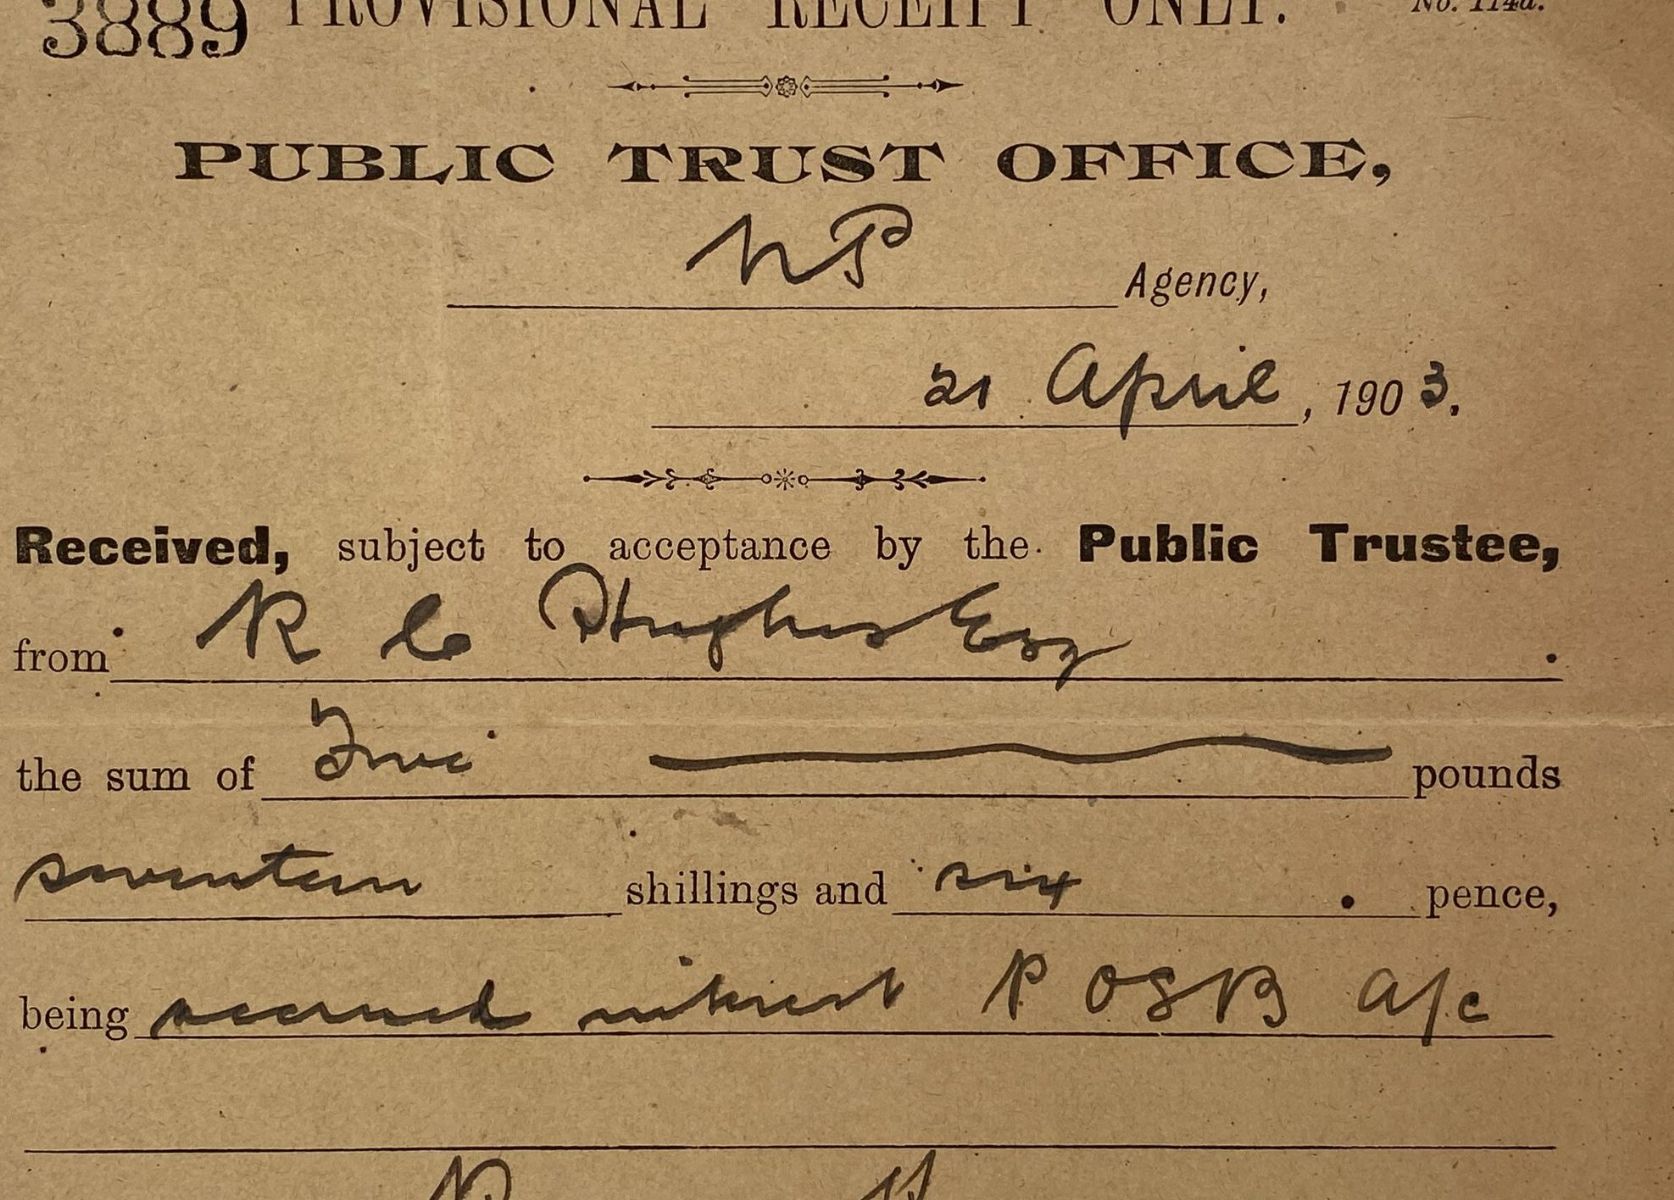 3889 PROVISIONAL RECEIPT ONLY. No. 114a.
PUBLIC TRUST OFFICE,
NP Agency,
21 April, 1903.
Received, subject to acceptance by the Public Trustee,
from R C Hughes Esq
the sum of pounds
seventeen shillings and six pence,
being accrued interest P O S B a/c